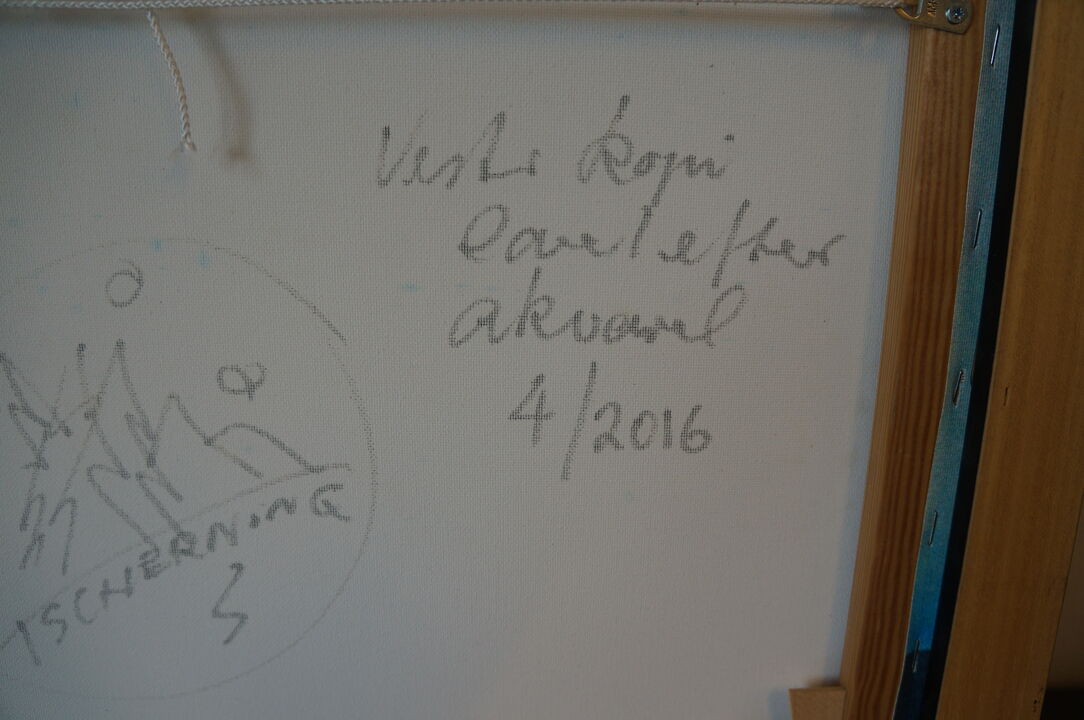 kopi
lavet efter
akvarel
4/2016
TSCHERNING